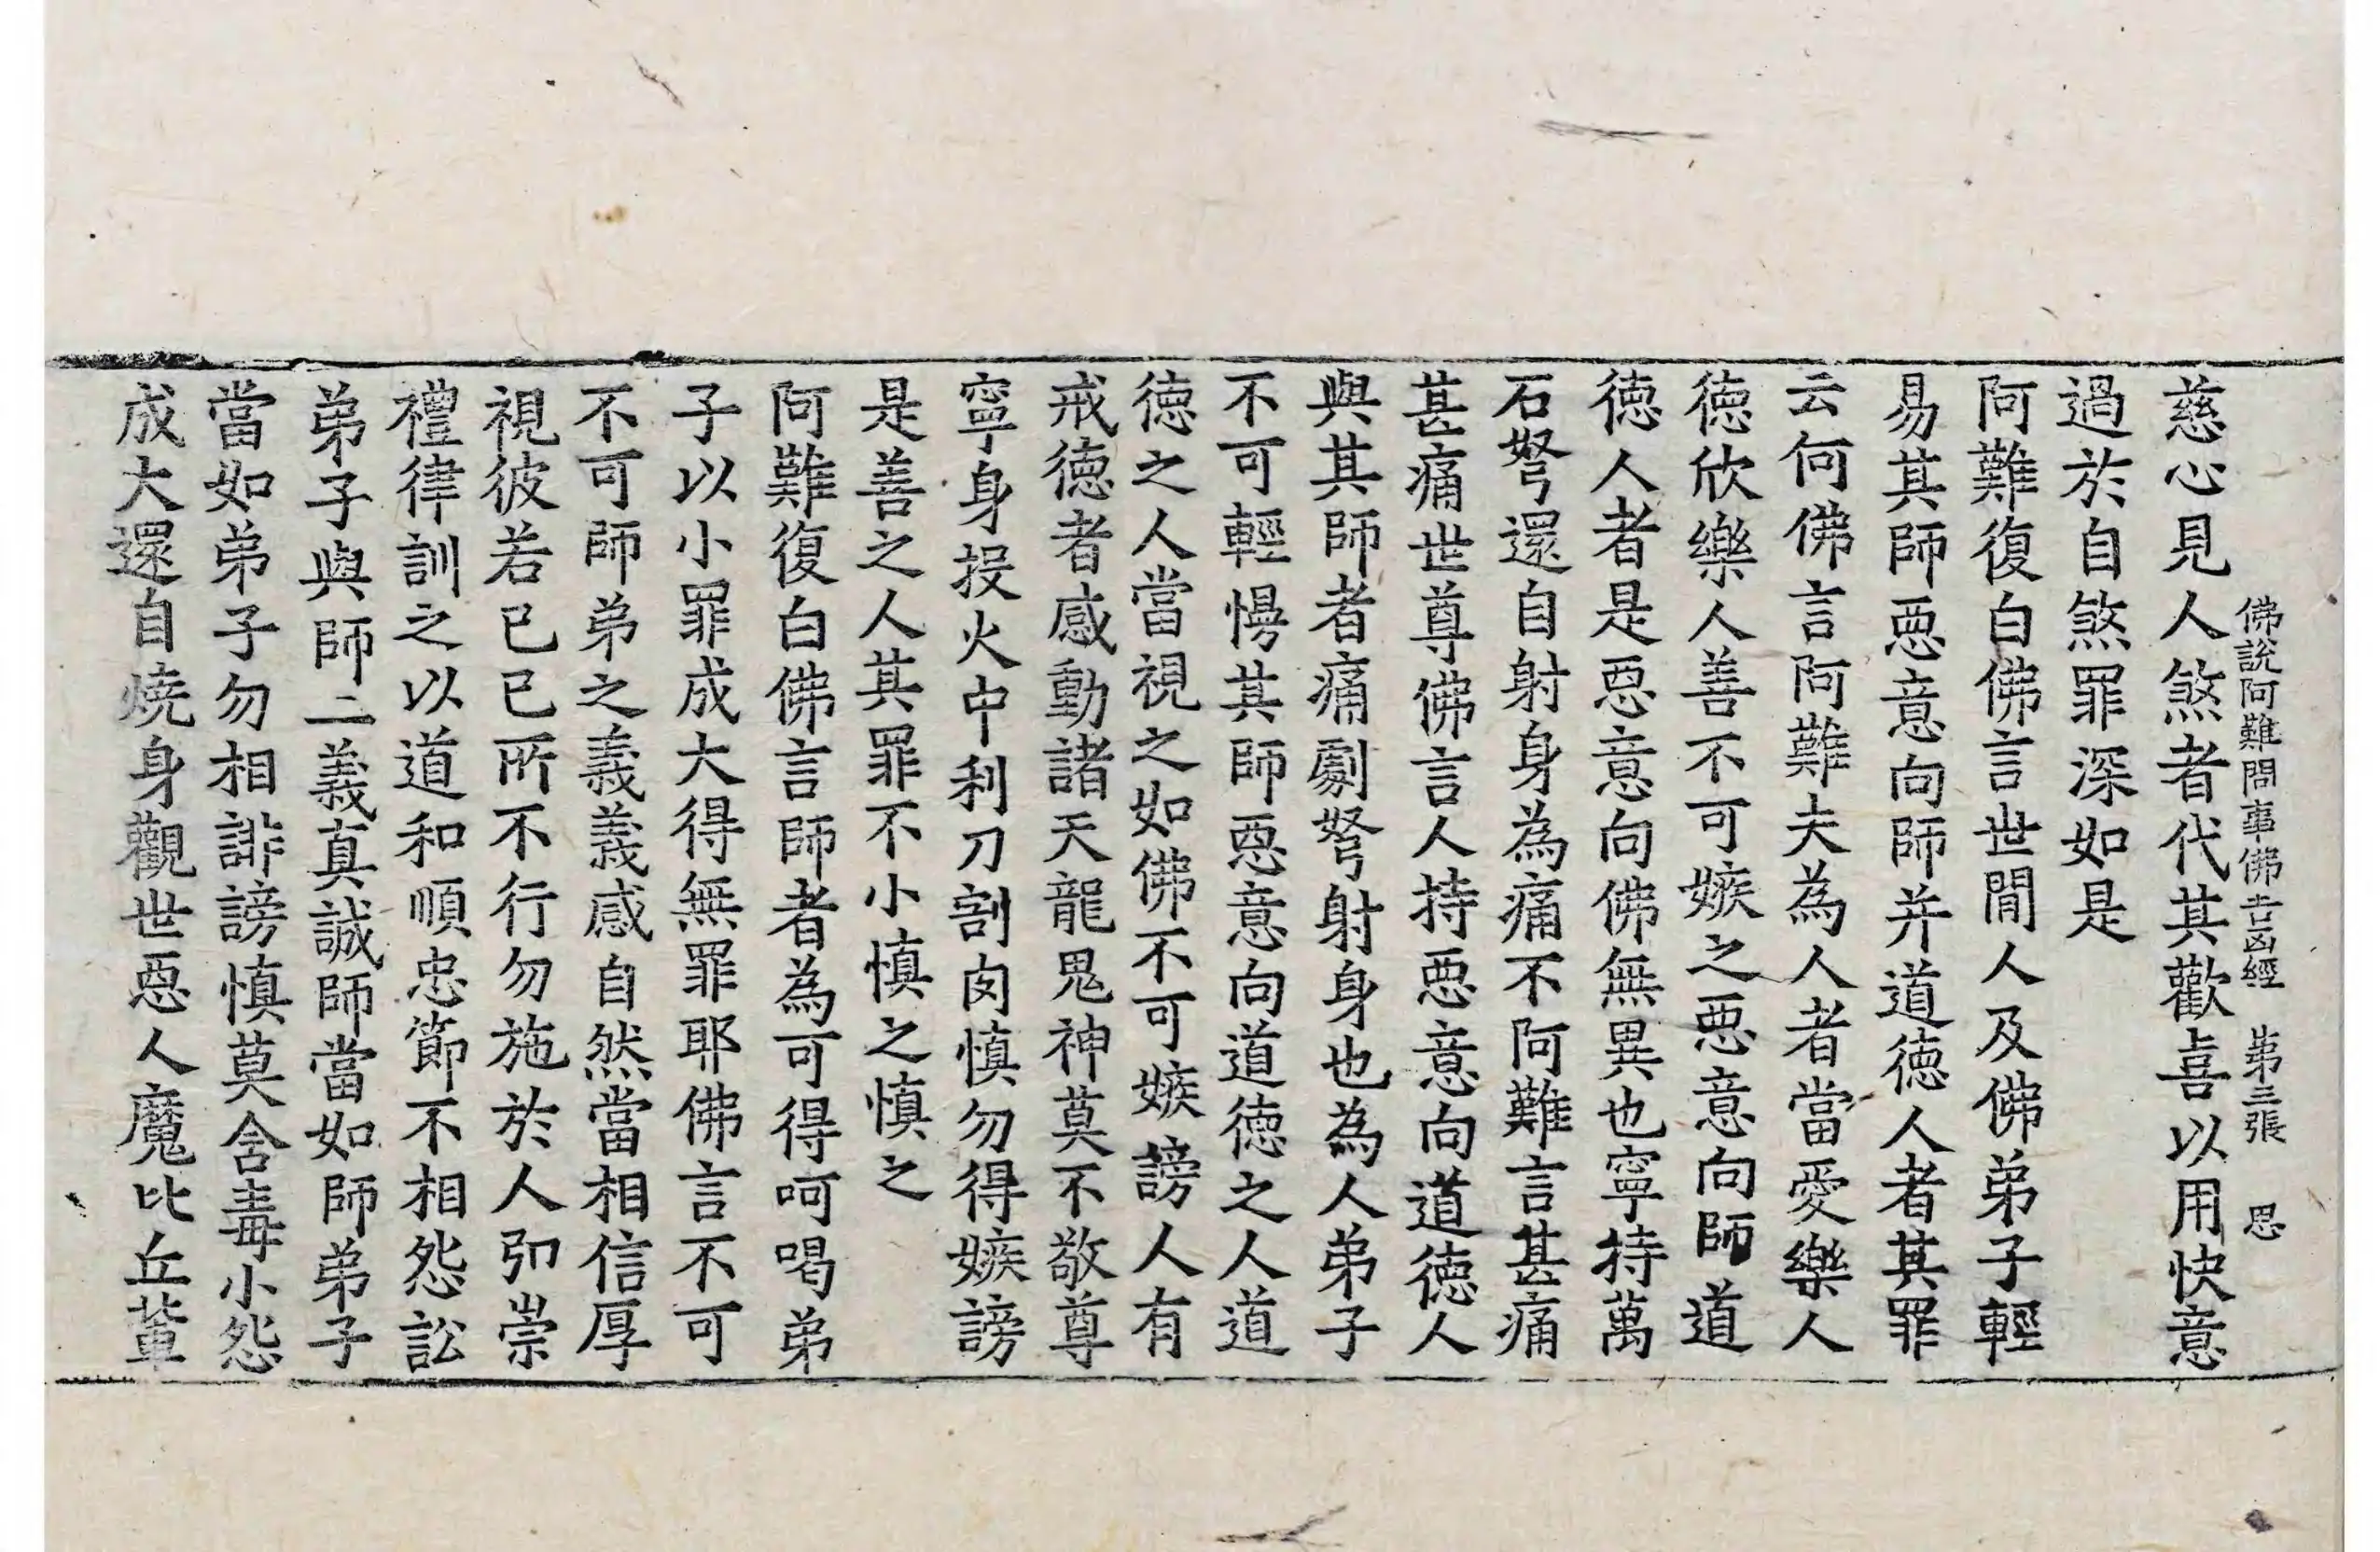 佛說阿難問事佛吉凶經 第三張 思
慈心見人煞者代其歡喜以用快意
過於自煞罪深如是
阿難復白佛言世閒人及佛弟子輕
易其師惡意向師并道德人者其罪
云何佛言阿難夫為人者當愛樂人
德欣樂人善不可嫉之惡意向師道
德人者是惡意向佛無異也寧持萬
石弩還自射身為痛不阿難言甚痛
甚痛世尊佛言人持惡意向道德人
與其師者痛劇弩射身也為人弟子
不可輕慢其師惡意向道德之人道
德之人當視之如佛不可嫉謗人有
戒德者感動諸天龍鬼神莫不敬尊
寧身投火中利刀割肉慎勿得嫉謗
是善之人其罪不小慎之慎之
阿難復白佛言師者為可得呵喝弟
子以小罪成大得無罪耶佛言不可
不可師弟之義義感自然當相信厚
視彼若已已所不行勿施於人弘崇
禮律訓之以道和順忠節不相怨訟
弟子與師二義真誠師當如師弟子
當如弟子勿相誹謗慎莫含毒小怨
成大還自燒身觀世惡人魔比丘輩